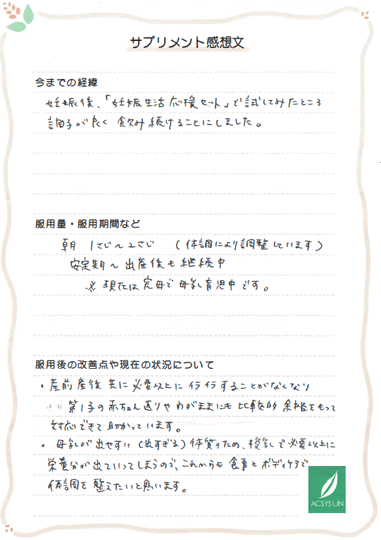 サプリメント感想文
今までの経緯
妊娠後、「妊娠生活応援セット」で試してみたところ
調子が良く飲み続けることにしました。
服用量・服用期間など
朝 1さじ〜2さじ (体調により調整しています)
安定期〜出産後も継続中
※ 現在は完母で母乳育児中です。
服用後の改善点や現在の状況について
・産前産後共に必要以上にイライラすることがなくなり
第1子の赤ちゃん返りやわがままにも比較的余裕をもって
対応できて助かっています。
・母乳が出やすい(出すぎる)体質のため、授乳で必要以上に
栄養分が出ていってしまうので、これからも食事とボディケアで
体調を整えたいと思います。
ACSYSUN